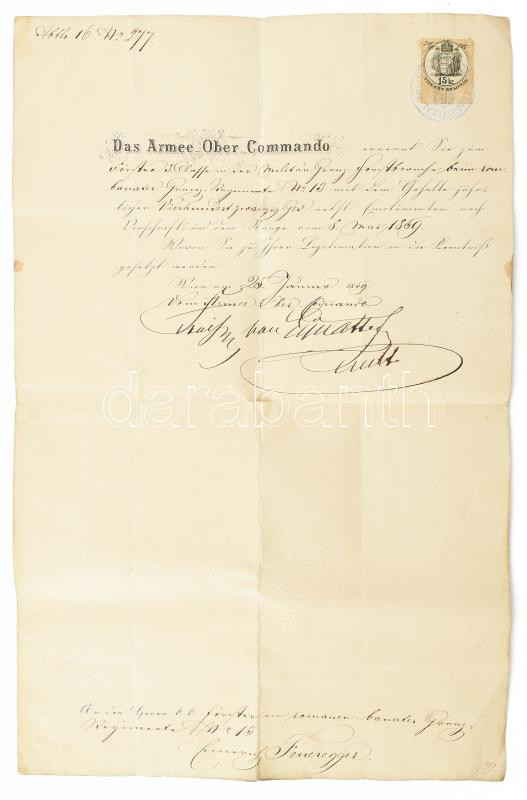 Abth. 16 No 277.
15 kr
Das Armee Ober Commando ernennt Sie zum
Förster 3 Classe in der Militär Grenz Forstbranche beim rom-
banater Grenz-Regimente No 13 mit dem Gehalte jähr-
licher Vierhundertzwanzig Gld nebst Emolumenten nach
Vorschrift und dem Range vom 8. Mai 1859.
Wovon Sie zu Ihrer Legitimation in die Kenntniß
gesetzt werden.
Wien am 25 Jänner 1859
Vom Armee Ober Commando
von Eynatten
darabanth
An den Herrn k. k. Förster im romanen banater Grenz-
Regimente No 13
Emerich Feueregger.